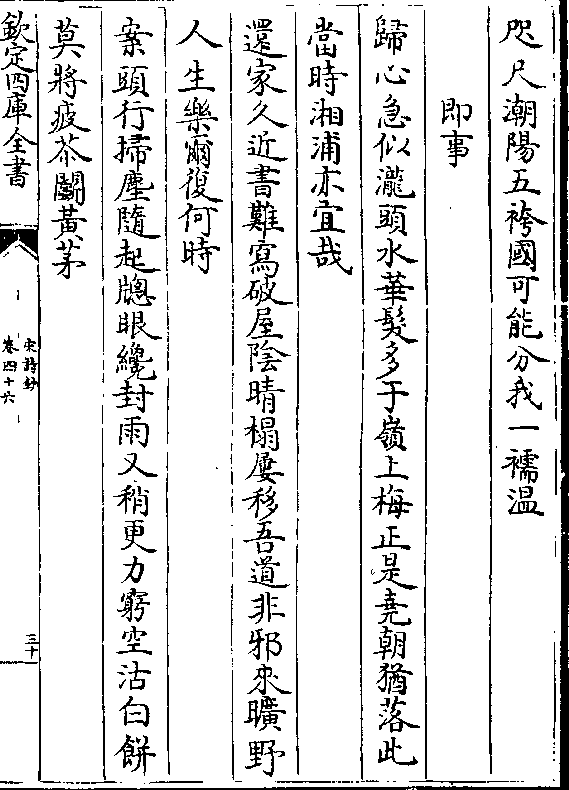 咫尺潮陽五袴國可能分我一襦温
即事
歸心急似瀧頭水華髮多于嶺上梅正是堯朝猶落此
當時湘浦亦宜哉
還家久近書難寫破屋陰晴榻屢移吾道非邪來曠野
人生樂爾復何時
案頭行掃塵隨起牎眼纔封雨又稍更力窮空沽白餅
莫將疲苶鬬黃茅
欽定四庫全書
宋詩鈔
卷四十六
三十